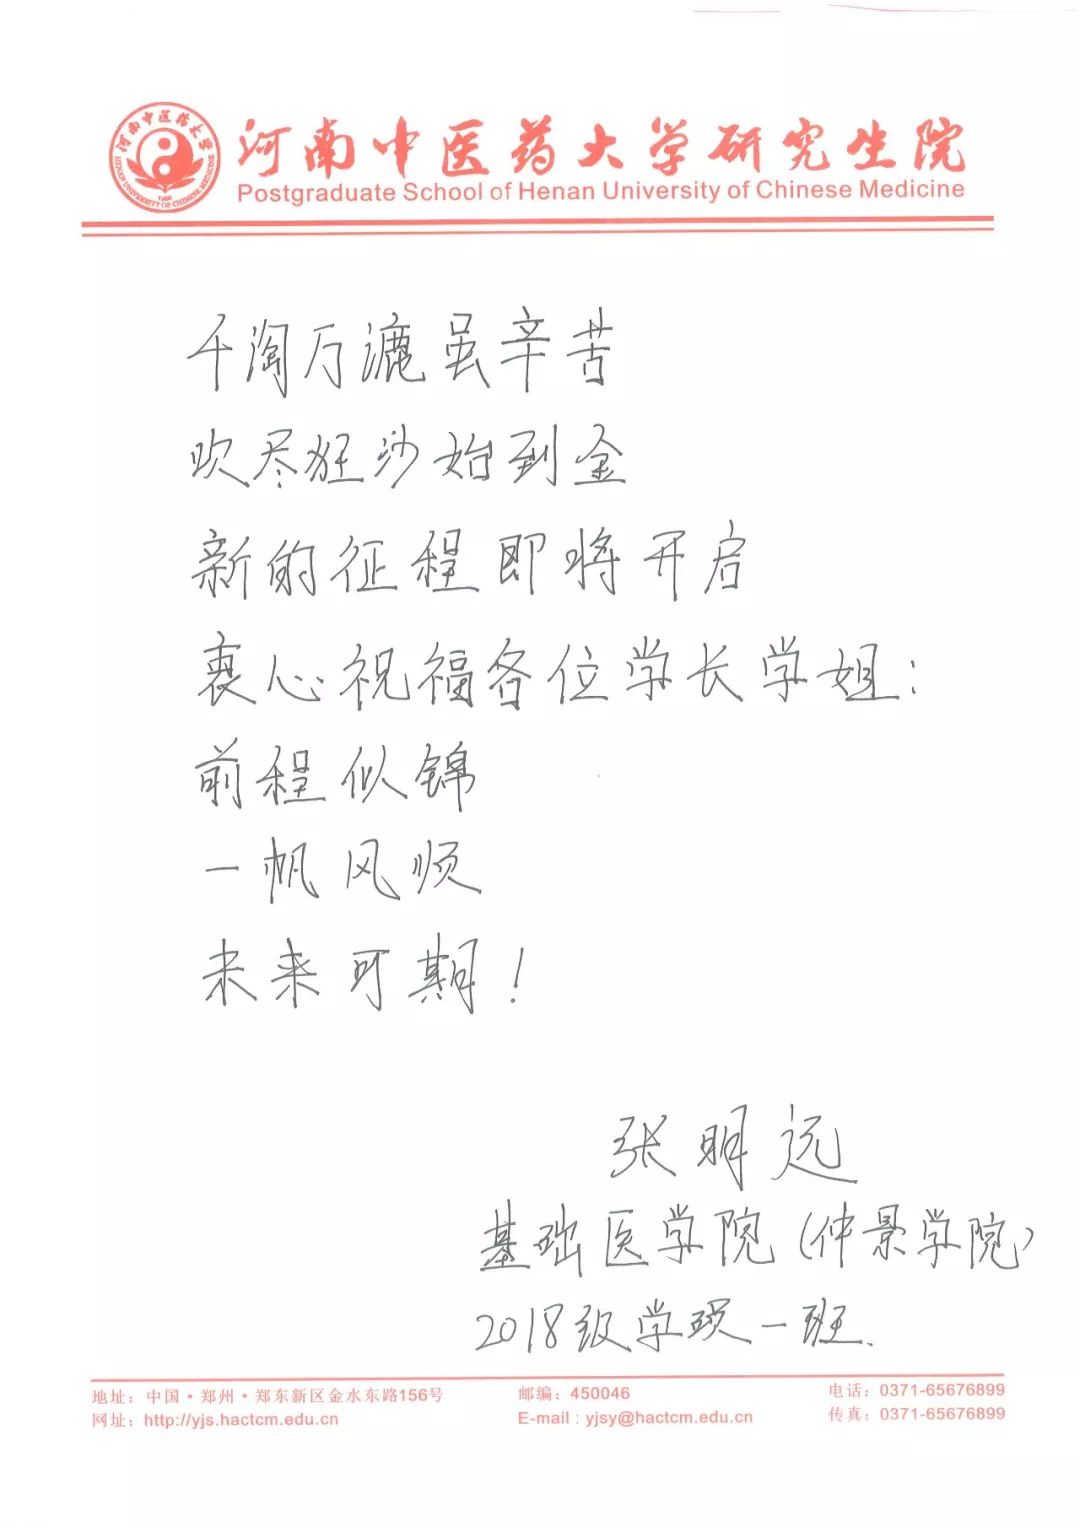 河南中医药大学
HENAN UNIVERSITY OF CHINESE MEDICINE
1958
河南中医药大学研究生院
Postgraduate School of Henan University of Chinese Medicine
千淘万漉虽辛苦
吹尽狂沙始到金
新的征程即将开启
衷心祝福各位学长学姐:
前程似锦
一帆风顺
未来可期!
张明远
基础医学院(仲景学院)
2018级学硕一班.
地址:中国·郑州·郑东新区金水东路156号 邮编:450046 电话:0371-65676899
网址:http://yjs.hactcm.edu.cn E-mail : yjsy@hactcm.edu.cn 传真:0371-65676899